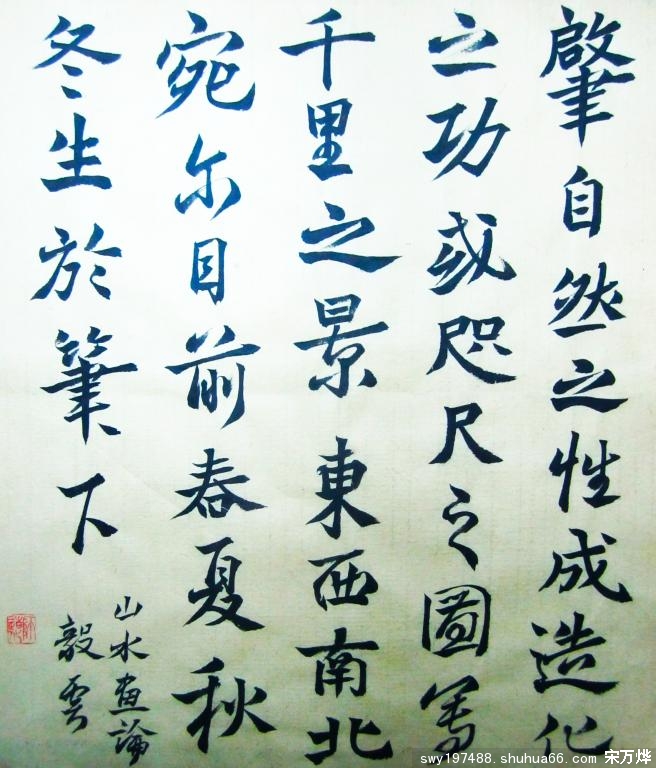 肇自然之性成造化
之功或咫尺之圖寫
千里之景東西南北
宛尔目前春夏秋
冬生於筆下
山水畫論
毅雲
swy197488.shuhua66.com 宋万烨